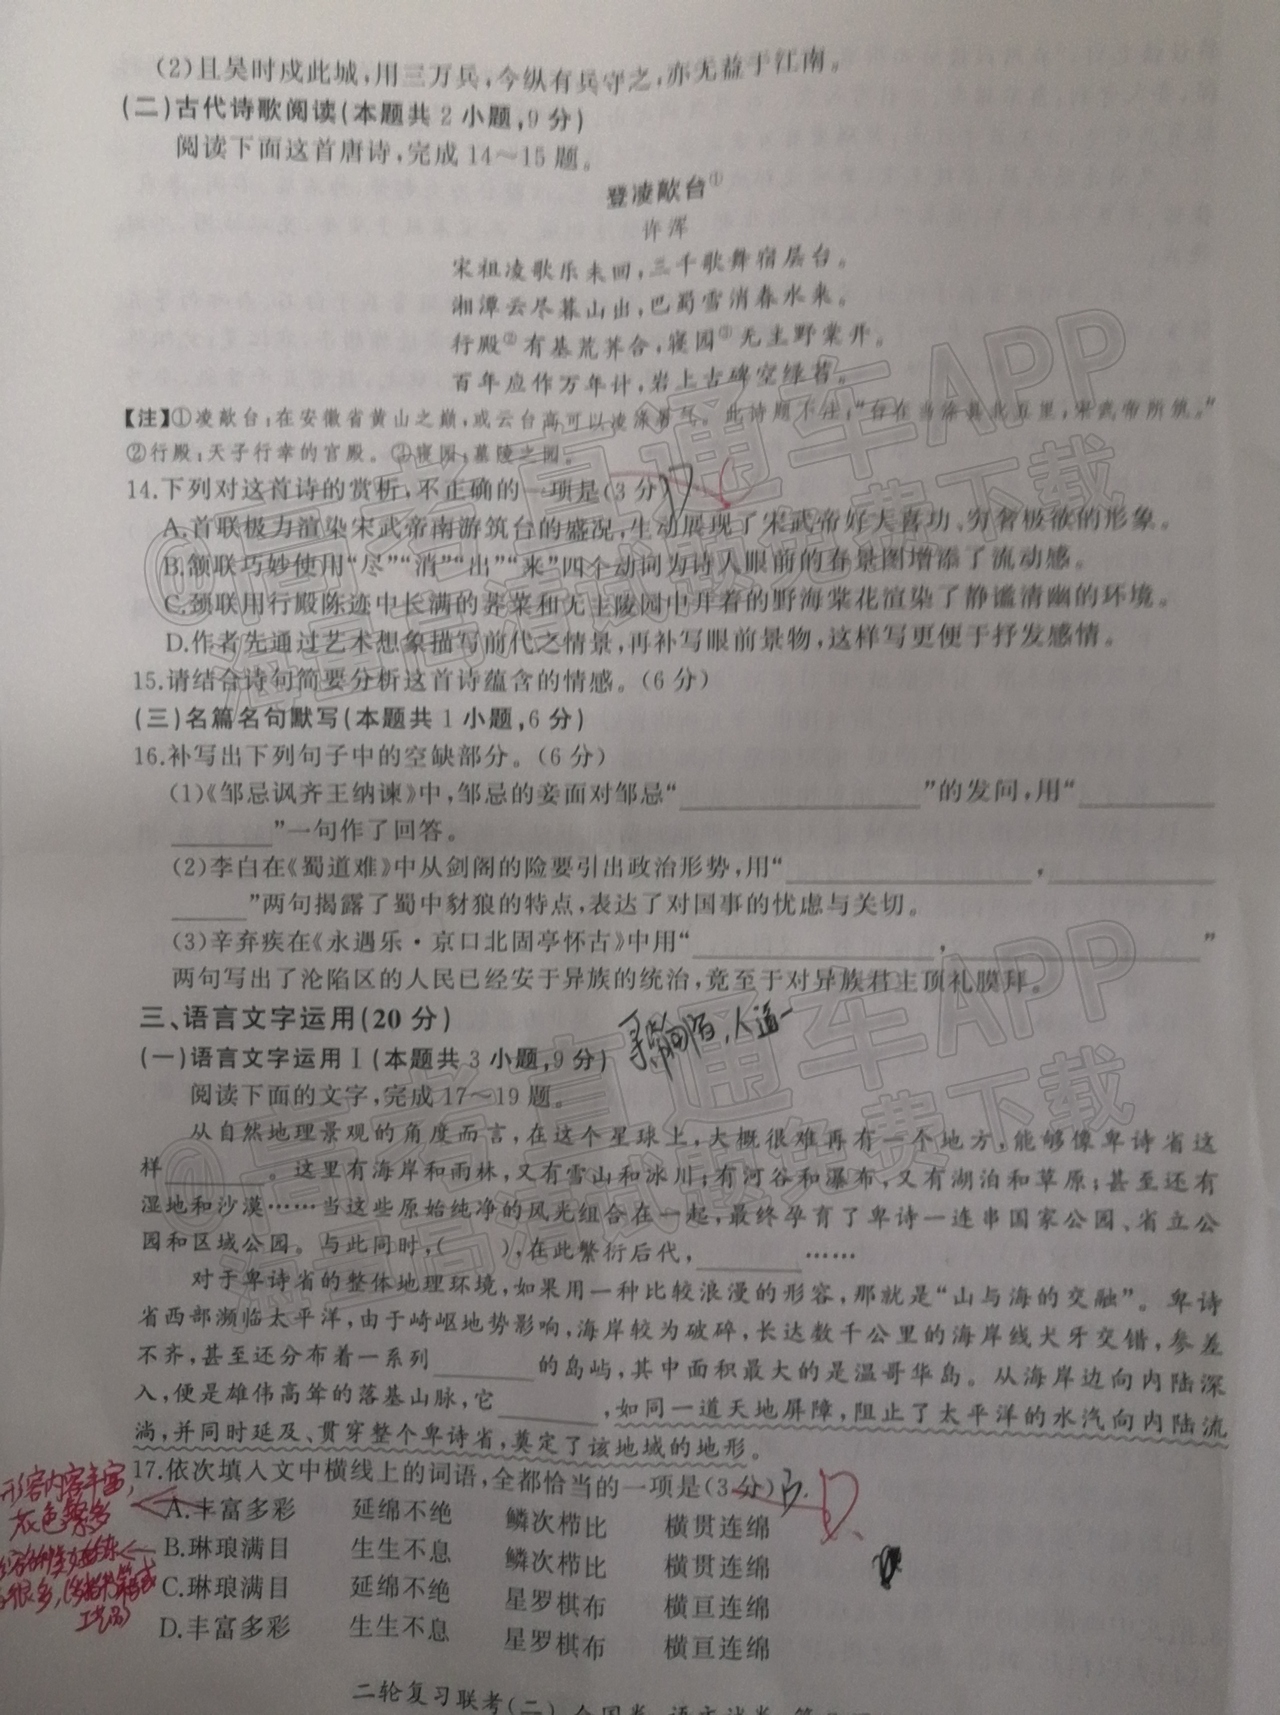 (2)且吴时戍此城,用三万兵,今纵有兵守之,亦无益于江南。
(二)古代诗歌阅读(本题共2小题,9分)
阅读下面这首唐诗,完成14~15题。
登凌歊台①
许浑
宋祖凌歌乐未回,三千歌舞宿层台。
湘潭云尽暮山出,巴蜀雪消春水来。
行殿②有基荒荠合,寝园③无主野棠开。
百年应作万年计,岩上古碑空绿苔。
【注】①凌歊台:在安徽省黄山之巅,或云台高可以凌涤暑气。此诗题下注:“台在当涂县北五里,宋武帝所筑。”
②行殿:天子行幸的官殿。③寝园:墓陵之园。
14.下列对这首诗的赏析,不正确的一项是(3分)
A.首联极力渲染宋武帝南游筑台的盛况,生动展现了宋武帝好大喜功、穷奢极欲的形象。
B.颔联巧妙使用“尽”“消”“出”“来”四个动词为诗人眼前的春景图增添了流动感。
C.颈联用行殿陈迹中长满的荠菜和无主陵园中开着的野海棠花渲染了静谧清幽的环境。
D.作者先通过艺术想象描写前代之情景,再补写眼前景物,这样写更便于抒发感情。
15.请结合诗句简要分析这首诗蕴含的情感。(6分)
(三)名篇名句默写(本题共1小题,6分)
16.补写出下列句子中的空缺部分。(6分)
(1)《邹忌讽齐王纳谏》中,邹忌的妾面对邹忌“________”的发问,用“________
________”一句作了回答。
(2)李白在《蜀道难》中从剑阁的险要引出政治形势,用“________,________
________”两句揭露了蜀中豺狼的特点,表达了对国事的忧虑与关切。
(3)辛弃疾在《永遇乐·京口北固亭怀古》中用“________,________”
两句写出了沦陷区的人民已经安于异族的统治,竟至于对异族君主顶礼膜拜。
三、语言文字运用(20分)
(一)语言文字运用Ⅰ(本题共3小题,9分)
阅读下面的文字,完成17~19题。
从自然地理景观的角度而言,在这个星球上,大概很难再有一个地方,能够像卑诗省这
样________。这里有海岸和雨林,又有雪山和冰川;有河谷和瀑布,又有湖泊和草原;甚至还有
湿地和沙漠……当这些原始纯净的风光组合在一起,最终孕育了卑诗一连串国家公园、省立公
园和区域公园。与此同时,(    ),在此繁衍后代,________……
对于卑诗省的整体地理环境,如果用一种比较浪漫的形容,那就是“山与海的交融”。卑诗
省西部濒临太平洋,由于崎岖地势影响,海岸较为破碎,长达数千公里的海岸线犬牙交错,参差
不齐,甚至还分布着一系列________的岛屿,其中面积最大的是温哥华岛。从海岸边向内陆深
入,便是雄伟高耸的落基山脉,它________,如同一道天地屏障,阻止了太平洋的水汽向内陆流
淌,并同时延及、贯穿整个卑诗省,奠定了该地域的地形。
17.依次填入文中横线上的词语,全都恰当的一项是(3分)
A.丰富多彩 延绵不绝 鳞次栉比 横贯连绵
B.琳琅满目 生生不息 鳞次栉比 横贯连绵
C.琳琅满目 延绵不绝 星罗棋布 横亘连绵
D.丰富多彩 生生不息 星罗棋布 横亘连绵
形容内容丰富,
二轮复习联考(二)